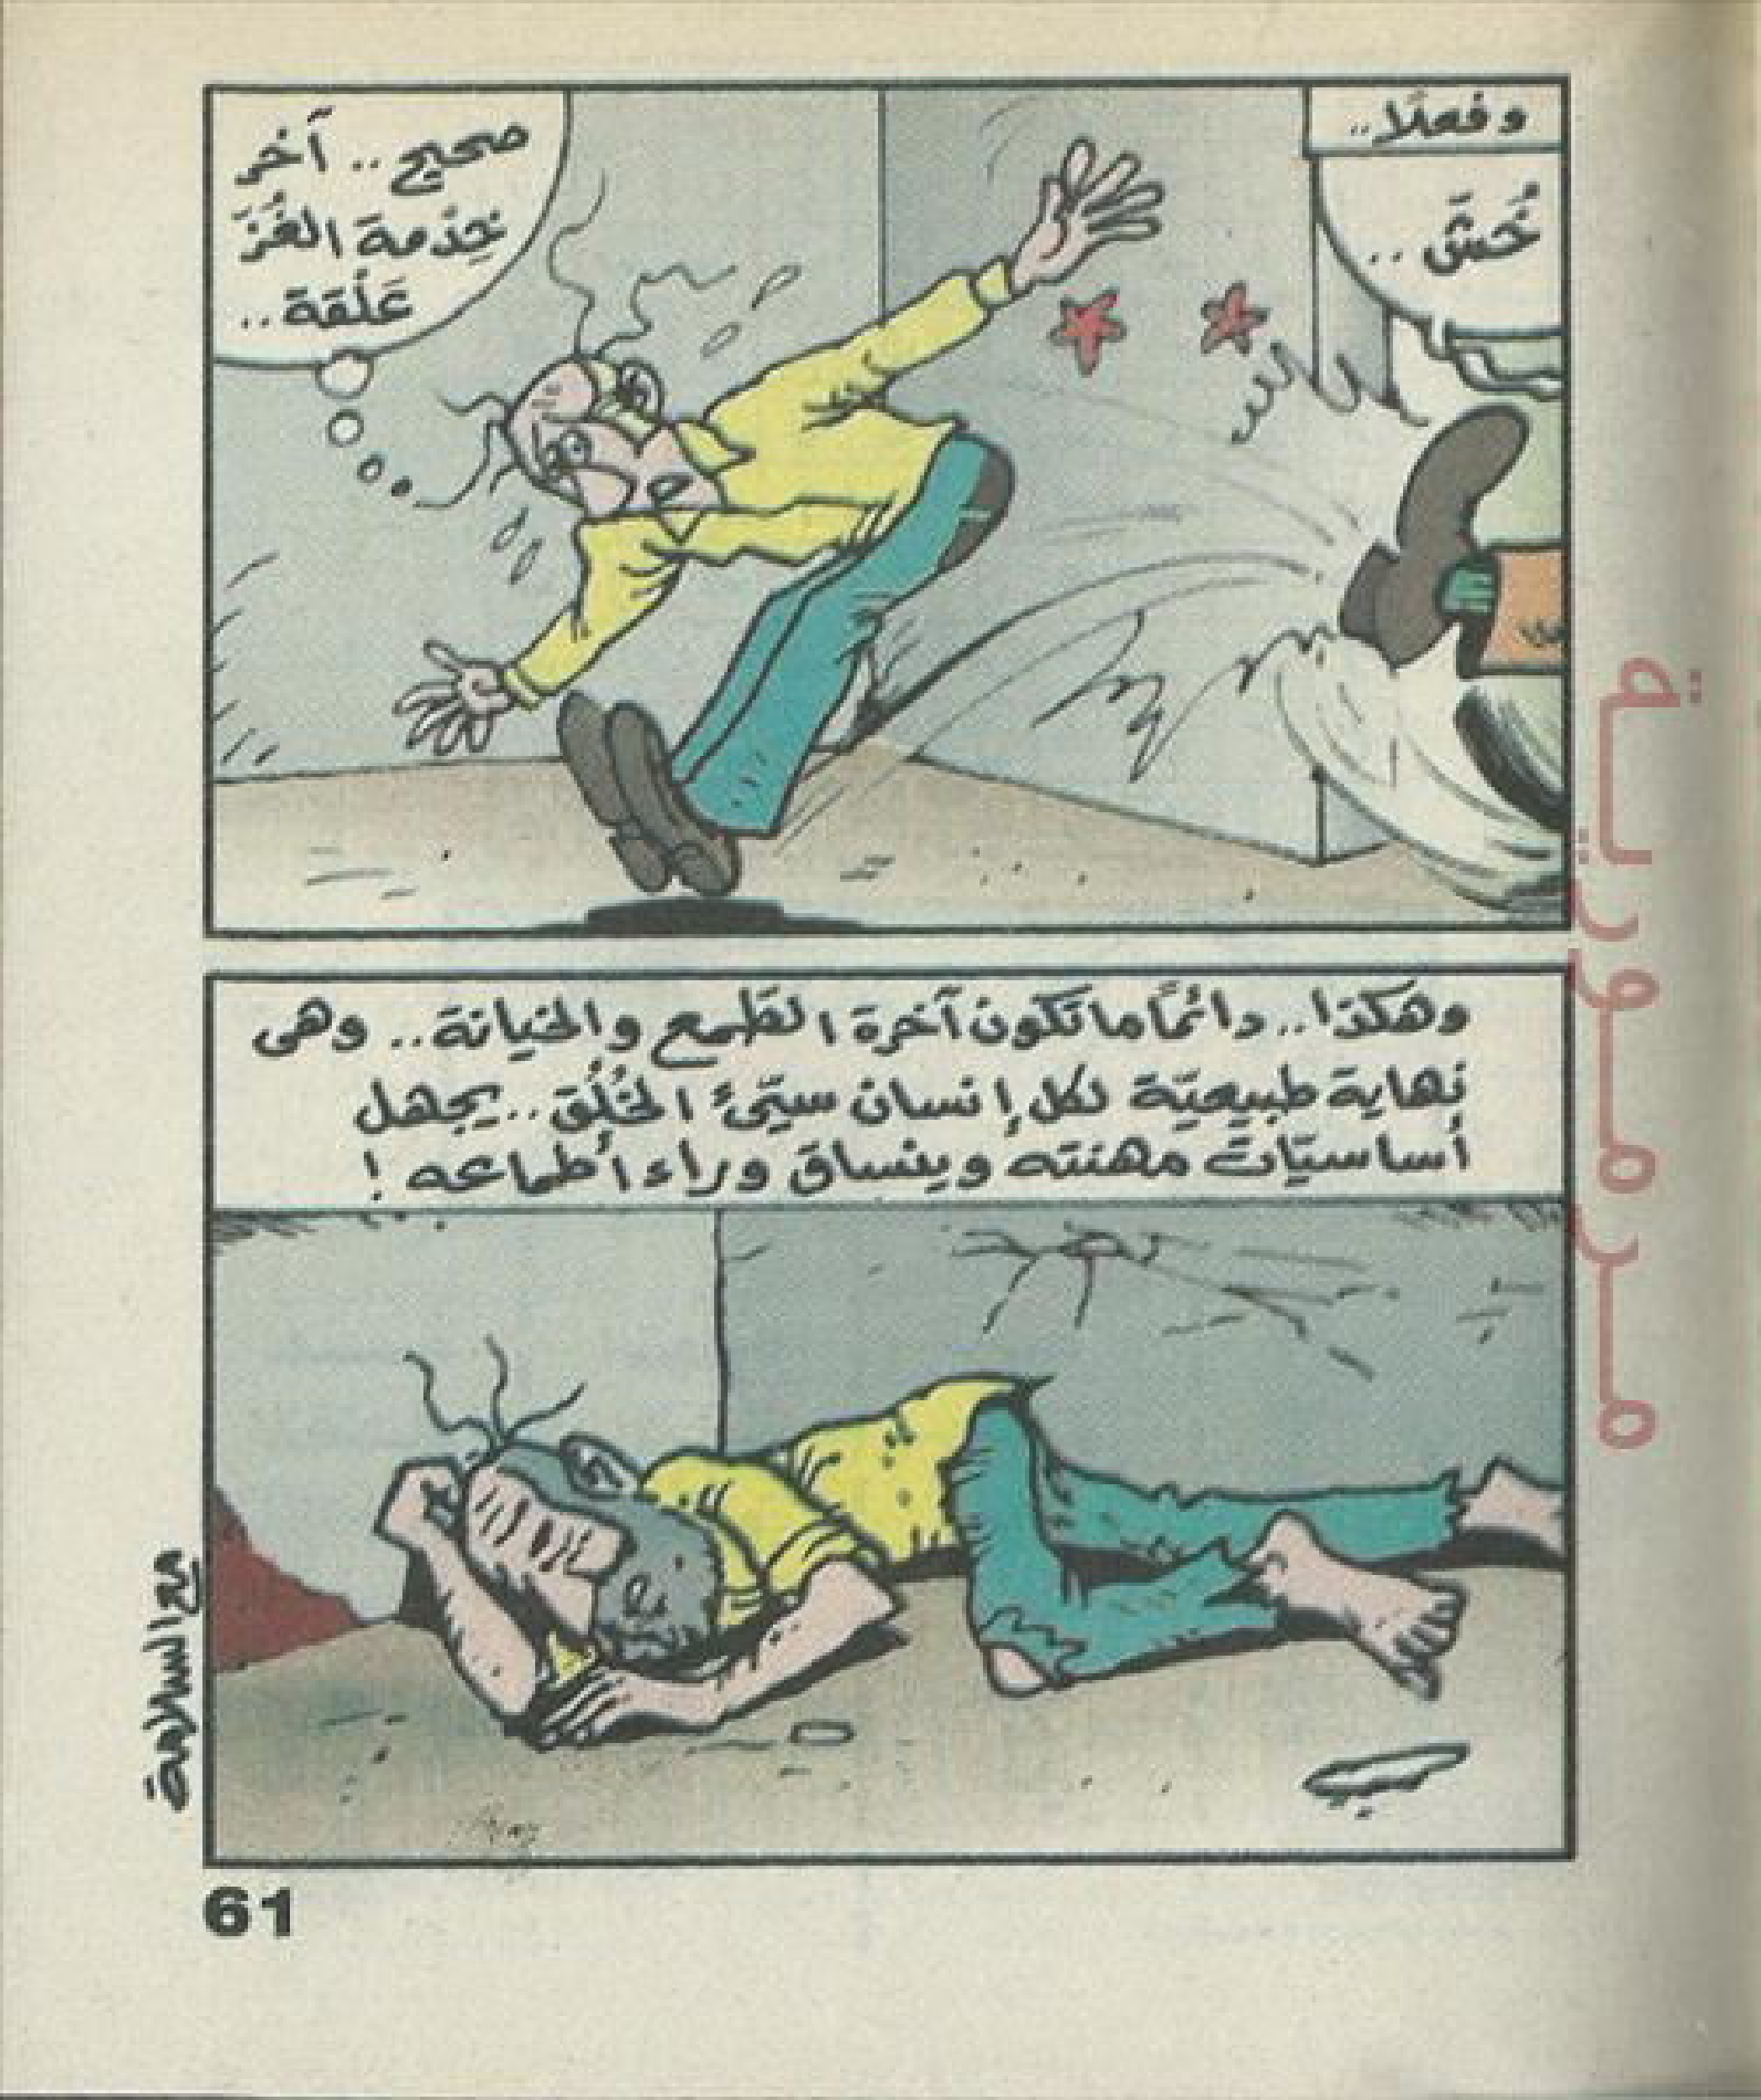 وفعلًا..
خُشّ..
صحيح.. آخر
خِدْمة الغُزّ
عَلْقة..
وهكذا.. دائمًا ما تكون آخرة الطمع والخيانة.. وهى
نهاية طبيعيّة لكل إنسان سيّئ الخُلُق.. يجهل
أساسيّات مهنته وينساق وراء أطماعه!
مع السلامة
61
مرمورية